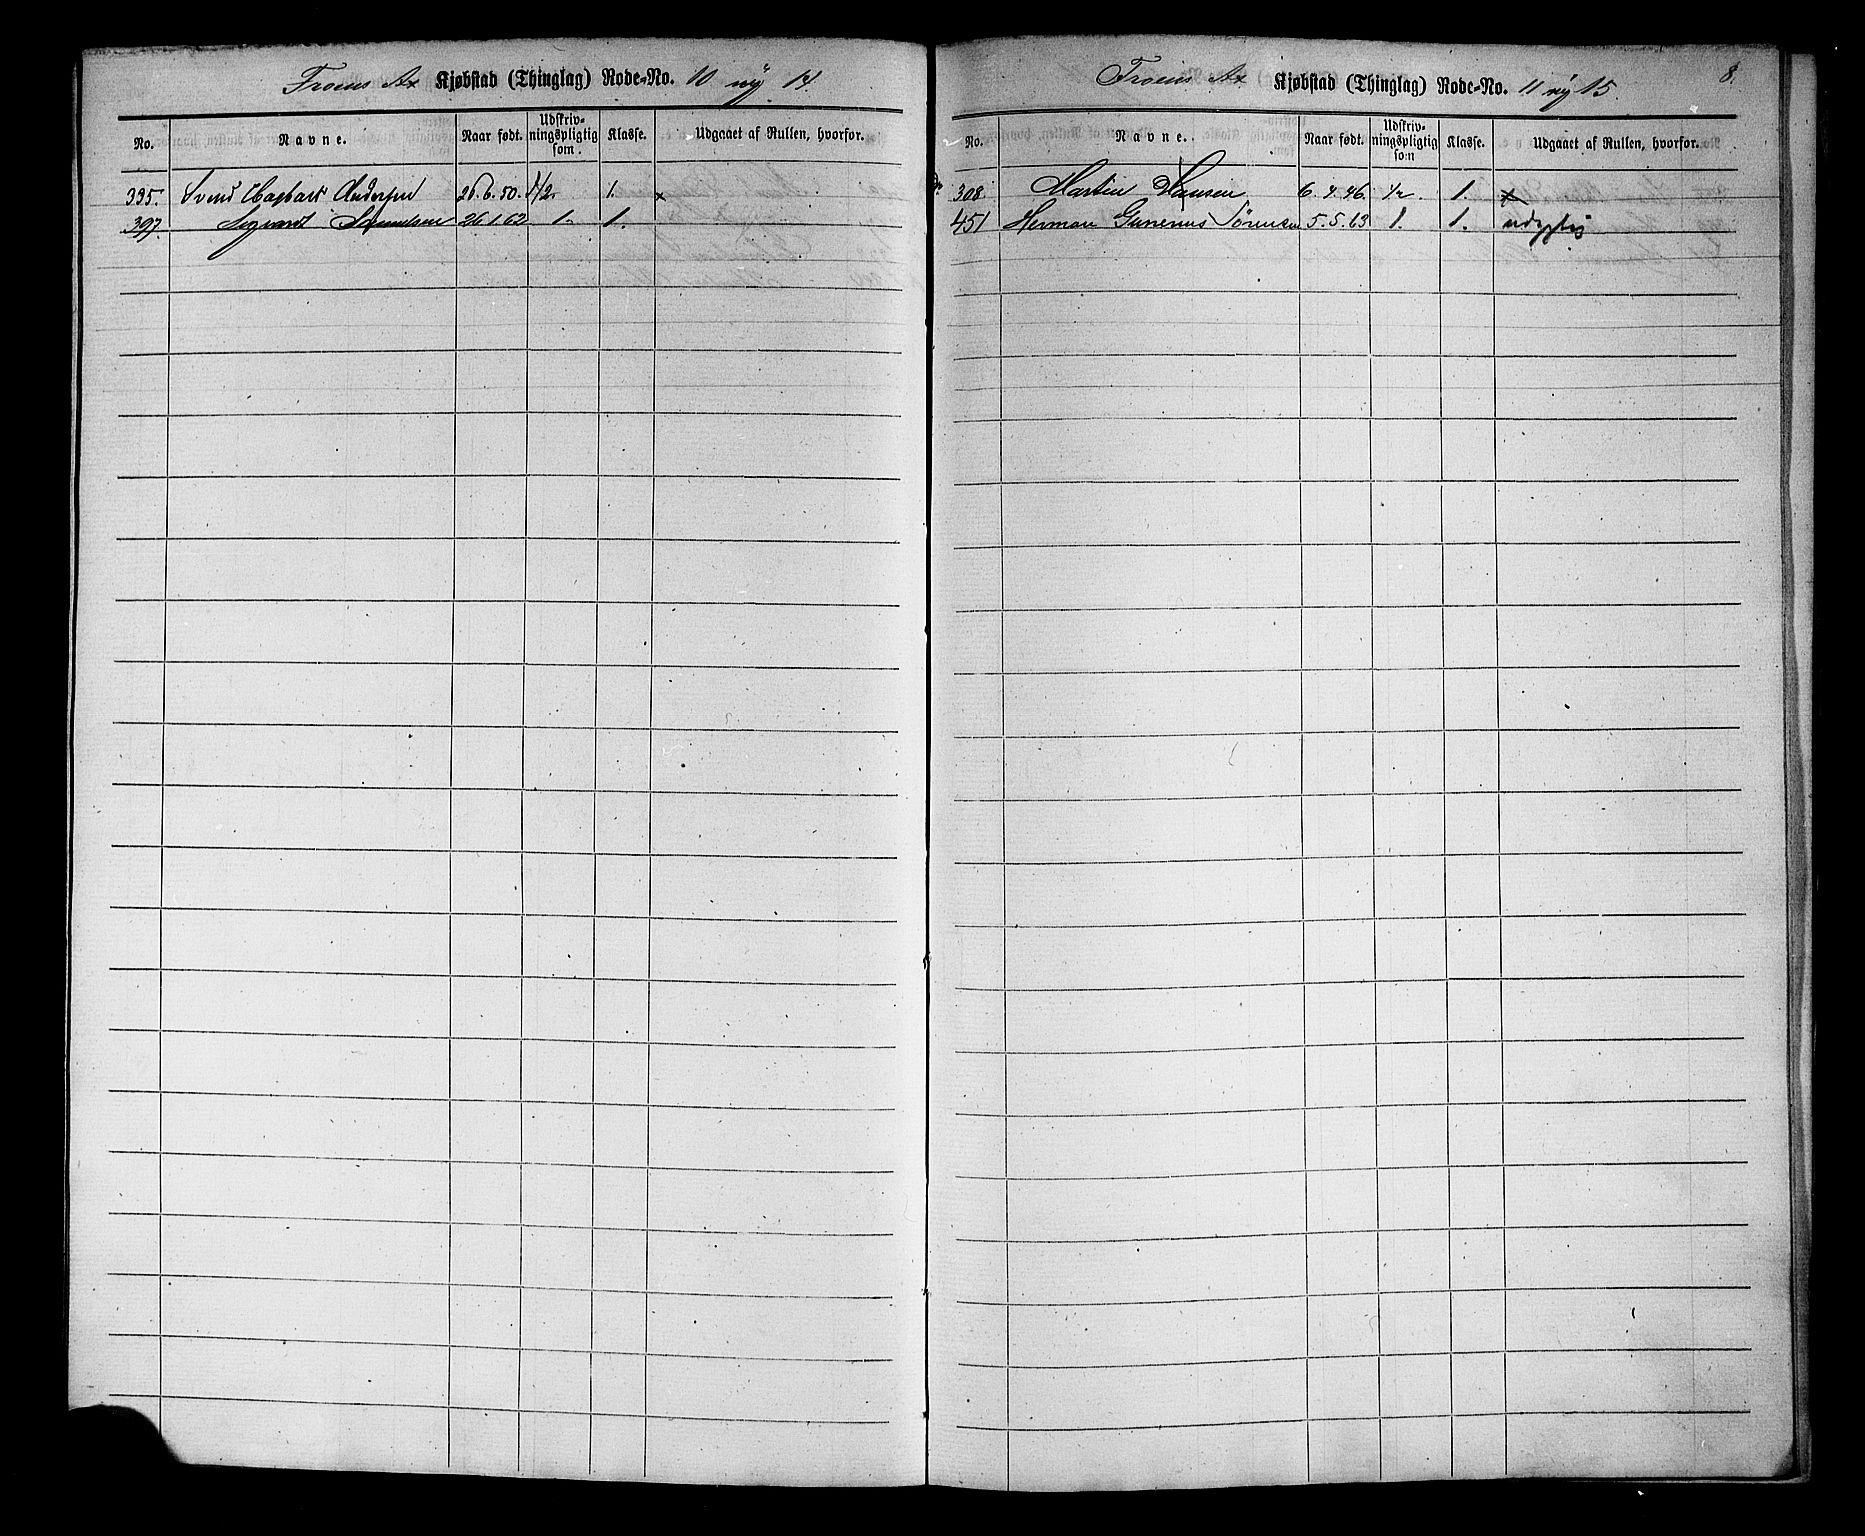 Froens Ax Kjøbstad (Thinglag) Rode-No. 10 ny 14.
No. Navne. Naar født. Udskriv-ningspligtig som. Klasse. Udgaaet af Rullen, hvorfor.
395. Svend Hagbart Andersen 26.6.50. 1/2 1. x
397. Sigvard Samuelsen 26.1.62 1. 1.
Froens Ax Kjøbstad (Thinglag) Rode-No. 11 ny 15. 8.
No. Navne. Naar født. Udskriv-ningspligtig som Klasse. Udgaaet af Rullen, hvorfor.
398. Martin Hansen 6.4.46. 1/2. 1. x
451 Herman Gunerius Sørensen 5.5.63 1. 1.